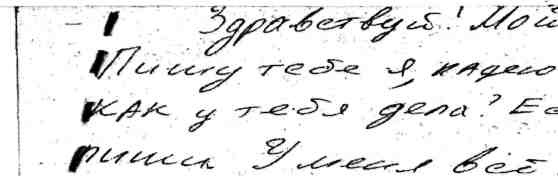 Здравствуй! Мой
Пишу тебе я, надею
как у тебя дела? Ес
пиши У меня всё